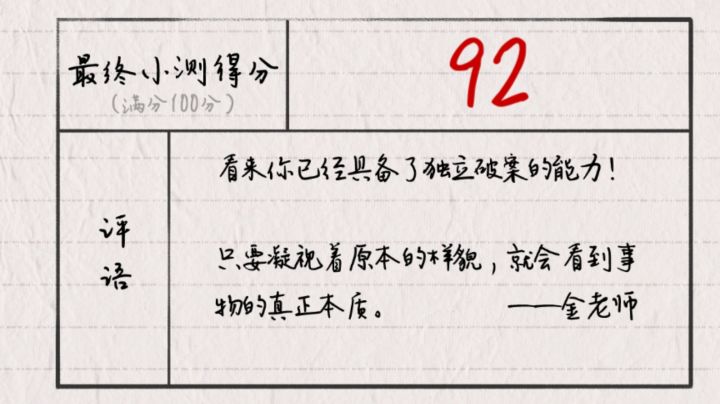 最终小测得分
(满分100分)
92
评语
看来你已经具备了独立破案的能力!
只要凝视着原本的样貌,就会看到事
物的真正本质。 ——金老师